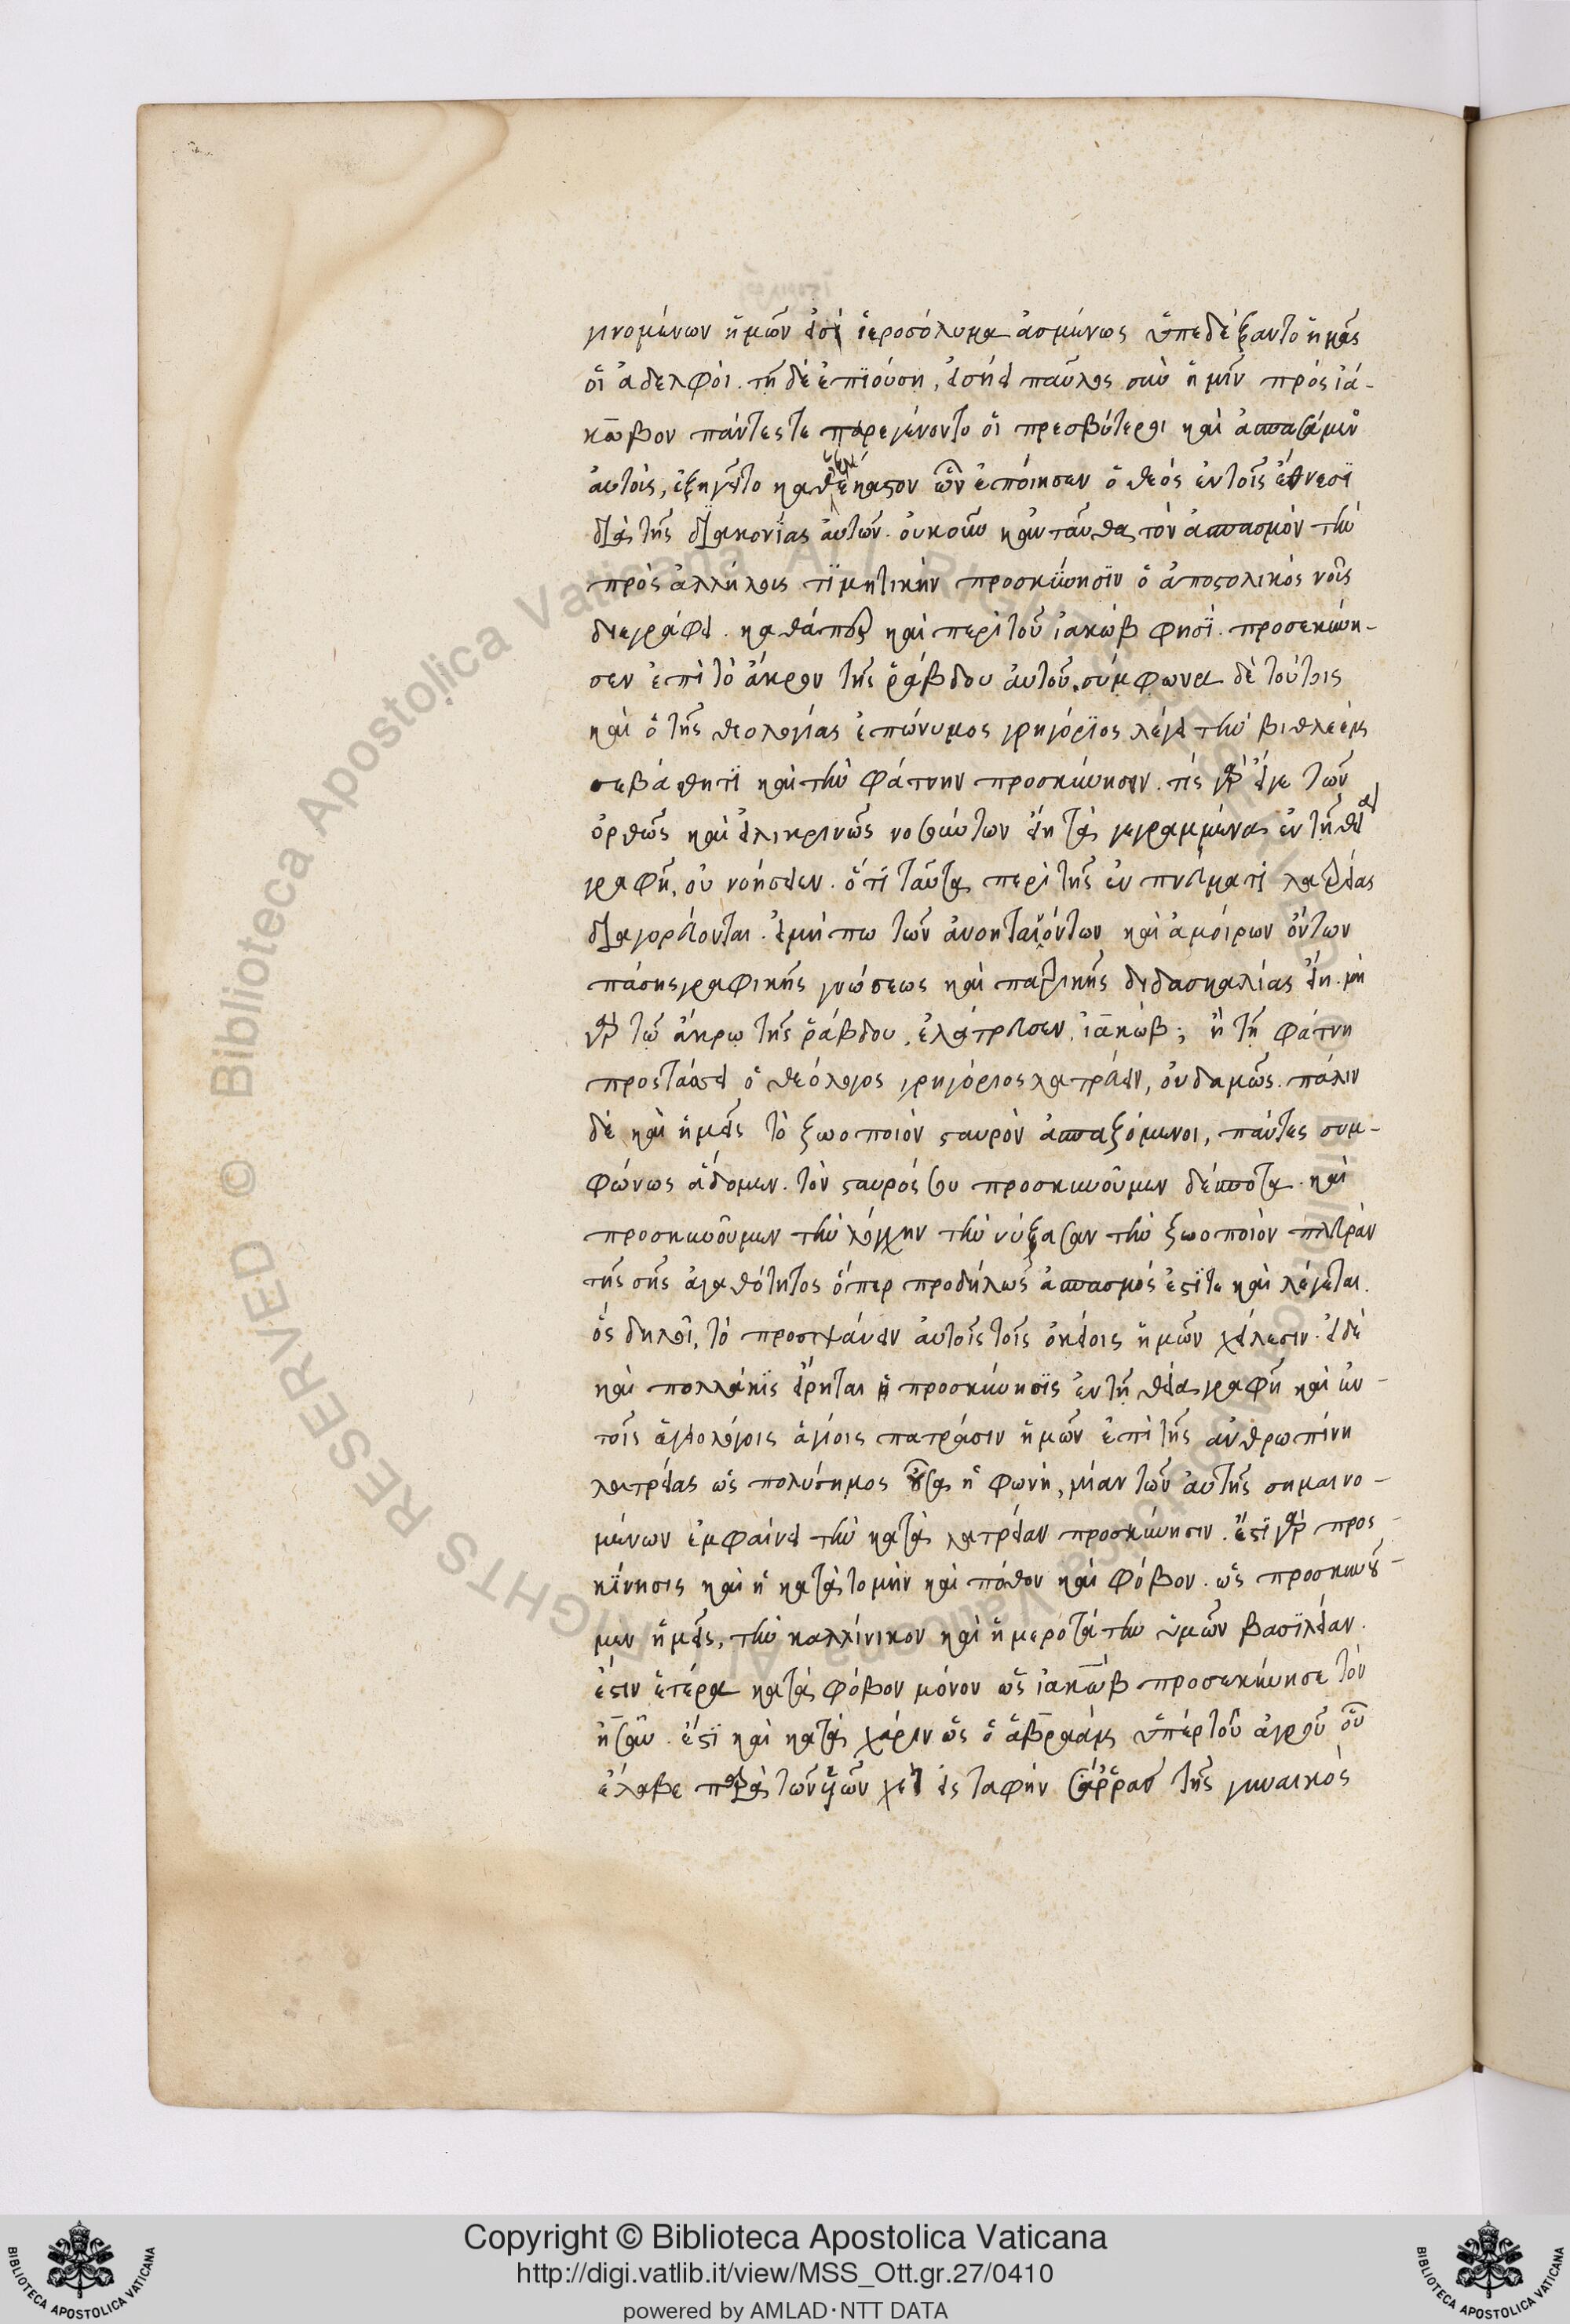 γινομένων ἡμῶν εἰσ ἱεροσόλυμα ἀσμένως ὑπεδέξαντο ἡμᾶς
οἱ ἀδελφοί. τῆ δὲ ἐπϊούση, εἰσήει παῦλος σὺν ἡμῖν πρὸς ἰά-
κωβον πάντες τε παρεγένοντο οἱ πρεσβύτεροι καὶ ἀσπασάμενος
αὐτοὺς, ἐξηγεῖτο καθὲν ἕκαστον ὧν ἐποίησεν ὁ θεὸς ἐν τοῖς ἔθνεσϊ
διὰ τῆς διακονΐας αὐτῶν. οὐκοῦν κἀνταῦθα τὸν ἀσπασμὸν τὴν
πρὸς ἀλλήλους τϊμητικὴν προσκύνησϊν ὁ ἀποστολικὸς νοῦς
διεγράφει. καθάπερ καὶ περὶ τοῦ ἰακώβ φησϊ. προσεκύνη-
σεν ἐπὶ τὸ ἄκρον τῆς ῥάβδου αὐτοῦ. σύμφωνα δὲ τούτοις
καὶ ὁ τῆς θεολογίας ἐπώνυμος γρηγόρϊος λέγει τὴν βιθλεὲμ
σεβάσθητϊ καὶ τὴν φάτνην προσκύνησον. τίς γὰρ εἴγε τῶν
ὀρθῶς καὶ εἰλικρινῶς νοούντων εἴη τὰ γεγραμμένα ἐν τῆ θεία
γραφῆ, οὐ νοήσειεν. ὅτϊ ταῦτα περὶ τῆς ἐν πνεύματϊ λατρείας
διαγορεύονται. εἰμήπω τῶν ἀνοηταϊόντων καὶ ἀμοίρων ὄντων
πάσης γραφικῆς γνώσεως καὶ πατρικῆς διδασκαλίας εἴη. μὴ
γὰρ τῶ ἄκρω τῆς ῥάβδου, ἐλάτρευσεν ἰακώβ; ἢ τῆ φάτνη
προστάσσει ὁ θεόλογος γρηγόριος λατρεύειν, οὐδαμῶς. πάλιν
δὲ καὶ ἡμεῖς τὸ ζωοποιὸν σταυρὸν ἀσπαζόμενοι, πάντες συμ-
φώνως ἄδομεν. τὸν σταυρόν σου προσκυνοῦμεν δέσποτα. καὶ
προσκυνοῦμεν τὴν λόγχην τὴν νύξασαν τὴν ζωοποιὸν πλευρὰν
τῆς σῆς ἀγαθότητος ὅπερ προδήλως ἀσπασμός ἐστϊ τε καὶ λέγεται.
ὡς δηλοῖ, τὸ προσψαύειν αὐτοῖς τοῖς οἰκείοις ἡμῶν χείλεσιν. εἰ δὲ
καὶ πολλάκϊς εἴρηται ἡ προσκύνησϊς ἐν τῆ θεία γραφῆ καὶ ἐν
τοῖς ἀγιολόγοις ἁγίοις πατράσιν ἡμῶν ἐπὶ τῆς ἀνθρωπίνη
λατρείας ὡς πολύσημος οὖσα ἡ φωνὴ, μίαν τῶν αὐτῆς σημαινο-
μένων ἐμφαίνει τὴν κατὰ λατρείαν προσκύνησιν. ἔστϊ γὰρ προς-
κϋνησις καὶ ἡ κατὰ τομὴν καὶ πόθον καὶ φόβον. ὡς προσκυνοῦ-
μεν ἡμεῖς, τὴν καλλίνικον καὶ ἡμεροτάτην ὑμῶν βασϊλείαν.
ἔστιν ἑτέρα κατὰ φόβον μόνον ὡς ἰακὼβ προσεκύνησε τὸν
ἠσαῦ. ἔστϊ καὶ κατὰ χάριν ὡς ὁ ἀβραὰμ ὑπὲρ τοῦ ἀγροῦ οὗ
ἔλαβε παρὰ τῶν υἱῶν χὲτ εἰς ταφὴν σάρρας τῆς γυναικὸς